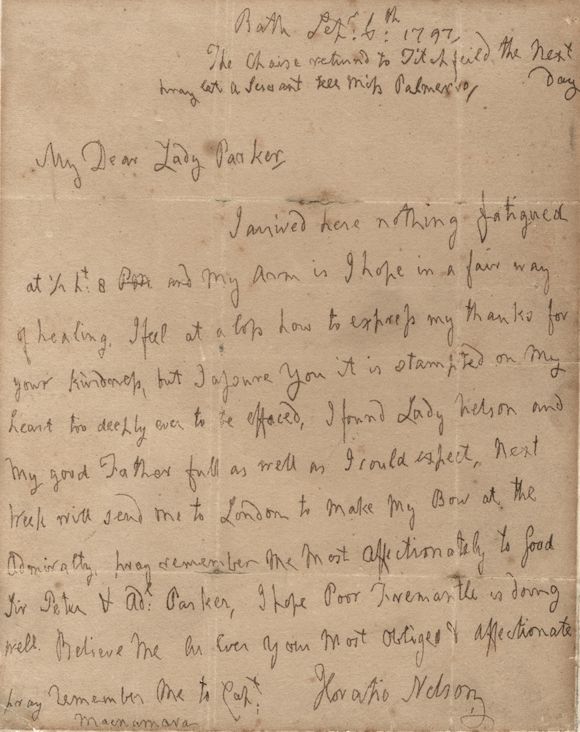 Bath Sepr: 6th: 1797,
The Chaise returnd to Titchfeild the Next
pray let a Servant tell Miss Palmer so, Day
My Dear Lady Parker,
I arrived here nothing fatigued
at ½ pt: 8 and My Arm is I hope in a fair way
of healing, I feel at a loss how to express my thanks for
your kindness, but I assure You it is stampted on My
heart too deeply ever to be effaced, I found Lady Nelson and
My good Father full as well as I could expect, Next
Week will send me to London to make My Bow at the
Admiralty, pray remember Me Most Affectionately to Good
Sir Peter & Adl: Parker, I hope Poor Fremantle is doing
well. Believe Me As Ever Your Most Obliged & Affectionate
Horatio Nelson,
pray remember Me to Capt:
Macnamara